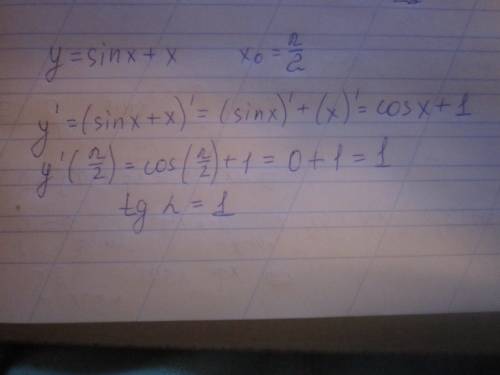 y = sinx + x x₀ = π/2
y' = (sinx + x)' = (sinx)' + (x)' = cosx + 1
y'(π/2) = cos(π/2) + 1 = 0 + 1 = 1
tg α = 1